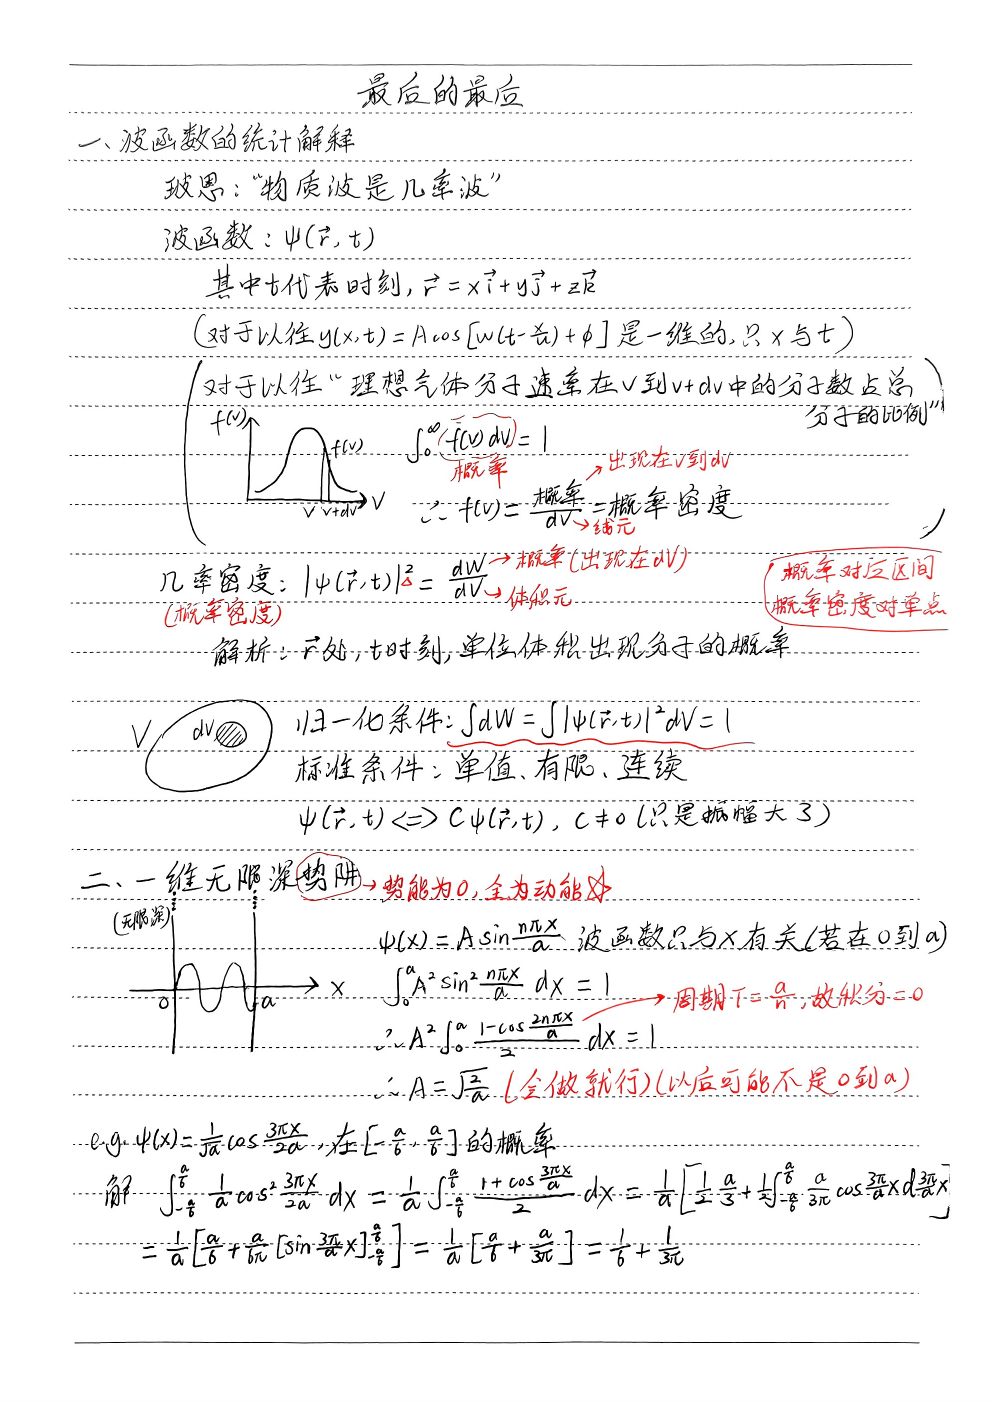 最后的最后
一、波函数的统计解释
玻恩：“物质波是几率波”
波函数：ψ(r⃗, t)
其中t代表时刻, r⃗ = xi⃗ + yj⃗ + zk⃗
(对于以往y(x,t) = A cos[w(t-x/u)+φ]是一维的,只x与t)
(对于以往“理想气体分子速率在v到v+dv中的分子数占总
分子的比例”)
f(v)
f(v)
v v+dv
V
∫₀^∞ f(v)dv = 1
概率
→出现在v到dv
∴ f(v) = 概率/dv = 概率密度
→线元
几率密度：|ψ(r⃗,t)|² = dW/dV
(概率密度)
→概率(出现在dV)
→体积元
概率对应区间
概率密度对单点
解析：r⃗处, t时刻, 单位体积出现分子的概率
V
dV
归一化条件：∫dW = ∫|ψ(r⃗,t)|²dV = 1
标准条件：单值、有限、连续
ψ(r⃗,t) <=> Cψ(r⃗,t), C≠0 (只是振幅大了)
二、一维无限深势阱→势能为0,全为动能☆
(无限深)
0 a x
ψ(x) = A sin nπx/a 波函数只与x有关(若在0到a)
∫₀^a A² sin² nπx/a dx = 1
∴ A² ∫₀^a (1-cos 2nπx/a)/2 dx = 1
→周期T = a/n, 故积分=0
∴ A = √(2/a) (会做就行)(以后可能不是0到a)
e.g. ψ(x) = 1/√a cos 3πx/2a, 在[-a/6, a/6]的概率
解 ∫_{-a/6}^{a/6} 1/a cos² 3πx/2a dx = 1/a ∫_{-a/6}^{a/6} (1+cos 3πx/a)/2 dx = 1/a [1/2 · a/3 + 1/2 ∫_{-a/6}^{a/6} a/3π cos 3π/a x d 3π/a x]
= 1/a [a/6 + a/6π [sin 3π/a x]_{-a/6}^{a/6}] = 1/a [a/6 + a/3π] = 1/6 + 1/3π